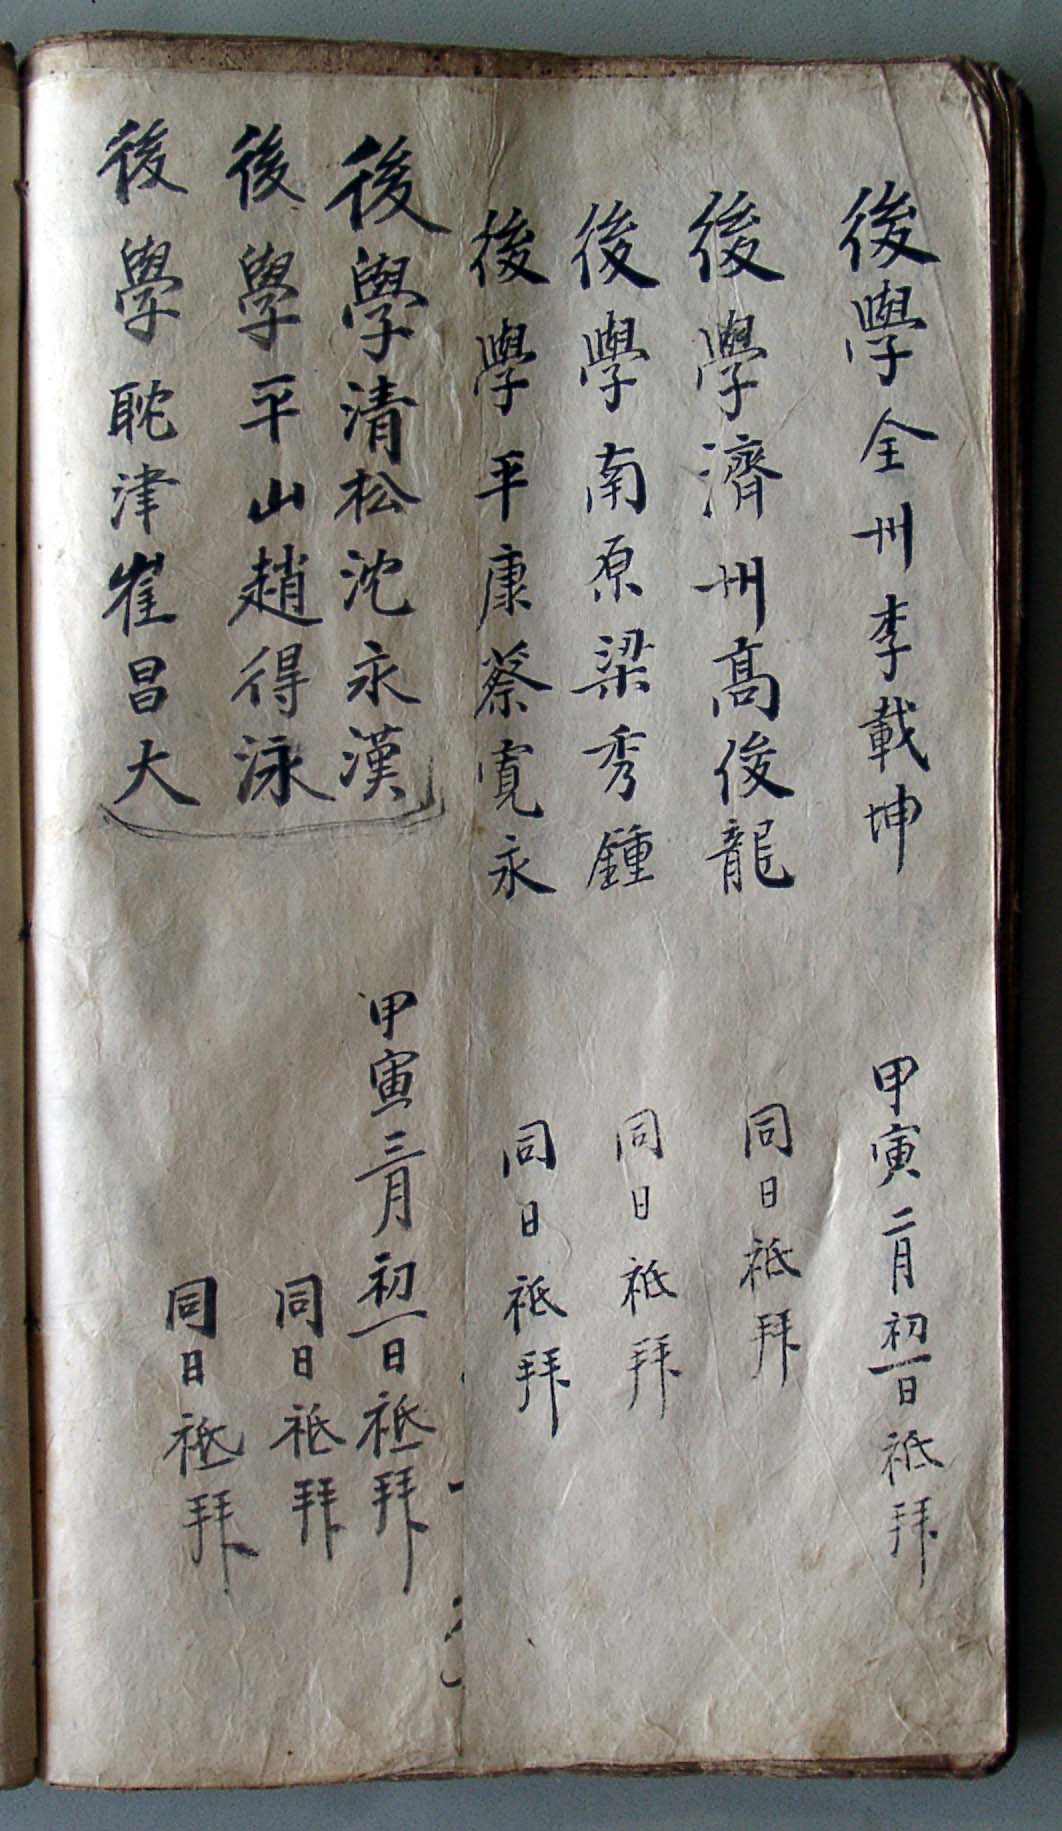 後學全州李載坤 甲寅二月初一日祗拜
後學濟州高俊龍 同日祗拜
後學南原梁秀鍾 同日祗拜
後學平康蔡寬永 同日祗拜
後學清松沈永漢 甲寅三月初一日祗拜
後學平山趙得泳 同日祗拜
後學耽津崔昌大 同日祗拜